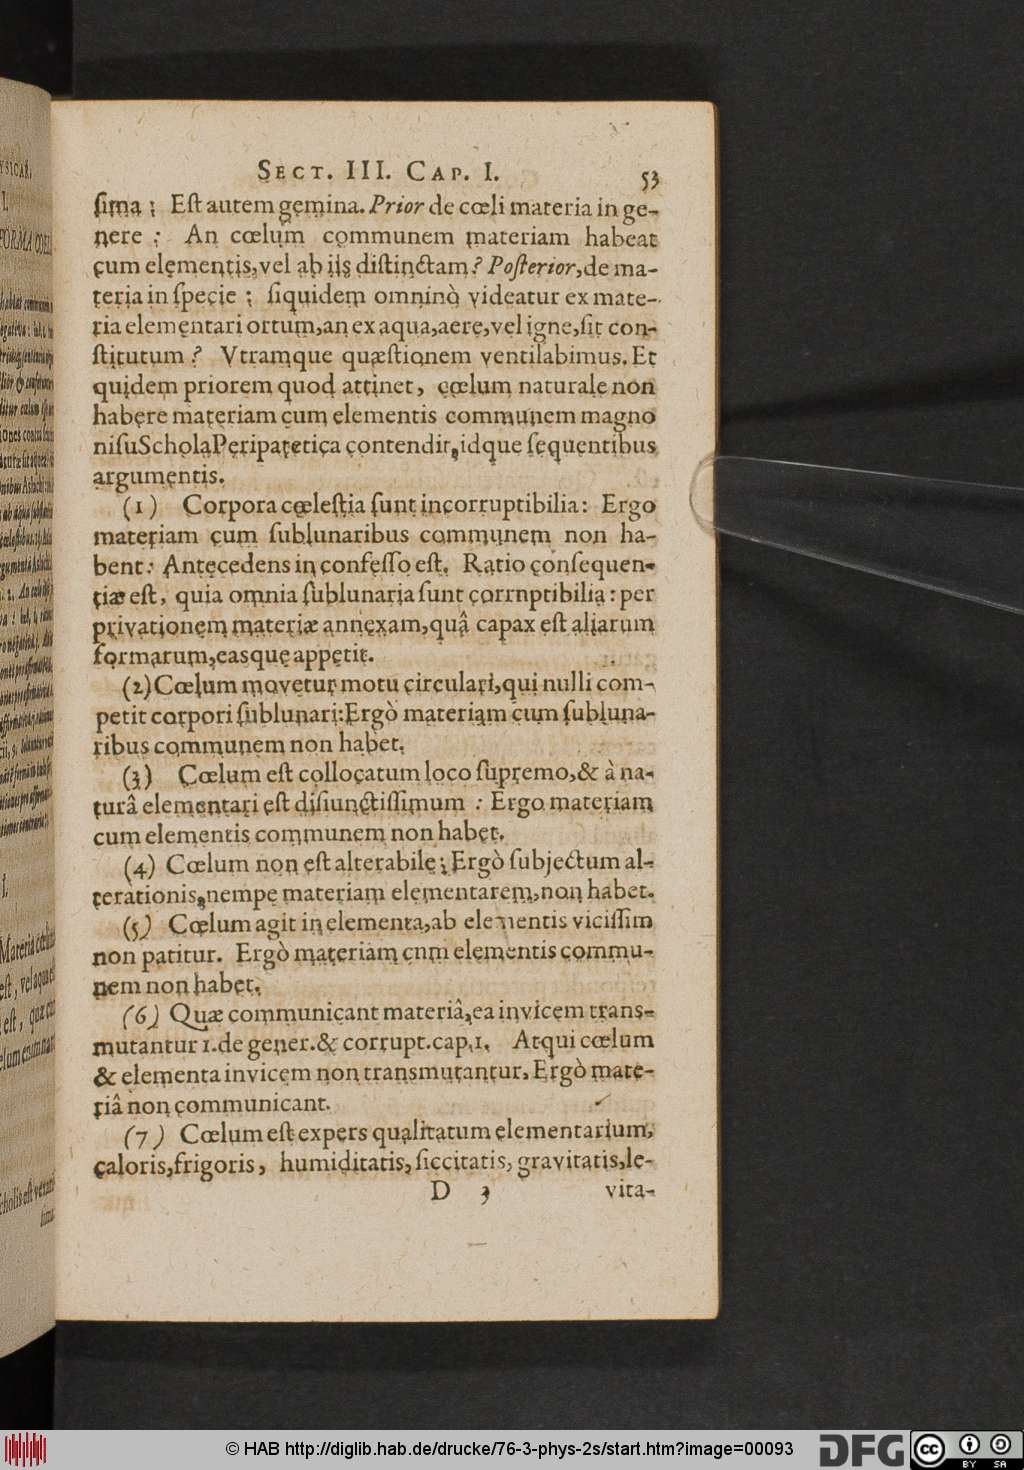 SECT. III. CAP. I. 53
ſima; Eſt autem gemina. Prior de cœli materia in ge-
nere: An cœlum communem materiam habeat
cum elementis, vel ab iis diſtinctam? Poſterior, de ma-
teria in ſpecie; ſiquidem omninò videatur ex mate-
ria elementari ortum, an ex aqua, aere, vel igne, ſit con-
ſtitutum? Vtramque quæſtionem ventilabimus. Et
quidem priorem quod attinet, cœlum naturale non
habere materiam cum elementis communem magno
niſu Schola Peripatetica contendit, idque ſequentibus
argumentis.
(1) Corpora cœleſtia ſunt incorruptibilia: Ergo
materiam cum ſublunaribus communem non ha-
bent: Antecedens in confeſſo eſt. Ratio conſequen-
tiæ eſt, quia omnia ſublunaria ſunt corrnptibilia: per
privationem materiæ annexam, quâ capax eſt aliarum
formarum, easque appetit.
(2) Cœlum movetur motu circulari, qui nulli com-
petit corpori ſublunari: Ergò materiam cum ſubluna-
ribus communem non habet.
(3) Cœlum eſt collocatum loco ſupremo, & à na-
turâ elementari eſt diſiunctiſſimum: Ergo materiam
cum elementis communem non habet.
(4) Cœlum non eſt alterabile; Ergò ſubjectum al-
terationis, nempe materiam elementarem, non habet.
(5) Cœlum agit in elementa, ab elementis viciſſim
non patitur. Ergò materiam cnm elementis commu-
nem non habet.
(6) Quæ communicant materiâ, ea invicem trans-
mutantur 1. de gener. & corrupt. cap. 1. Atqui cœlum
& elementa invicem non transmutantur, Ergò mate-
riâ non communicant.
(7) Cœlum eſt expers qualitatum elementarium,
caloris, frigoris, humiditatis, ſiccitatis, gravitatis, le-
D 3 vita-
© HAB http://diglib.hab.de/drucke/76-3-phys-2s/start.htm?image=00093
DFG
cc BY SA